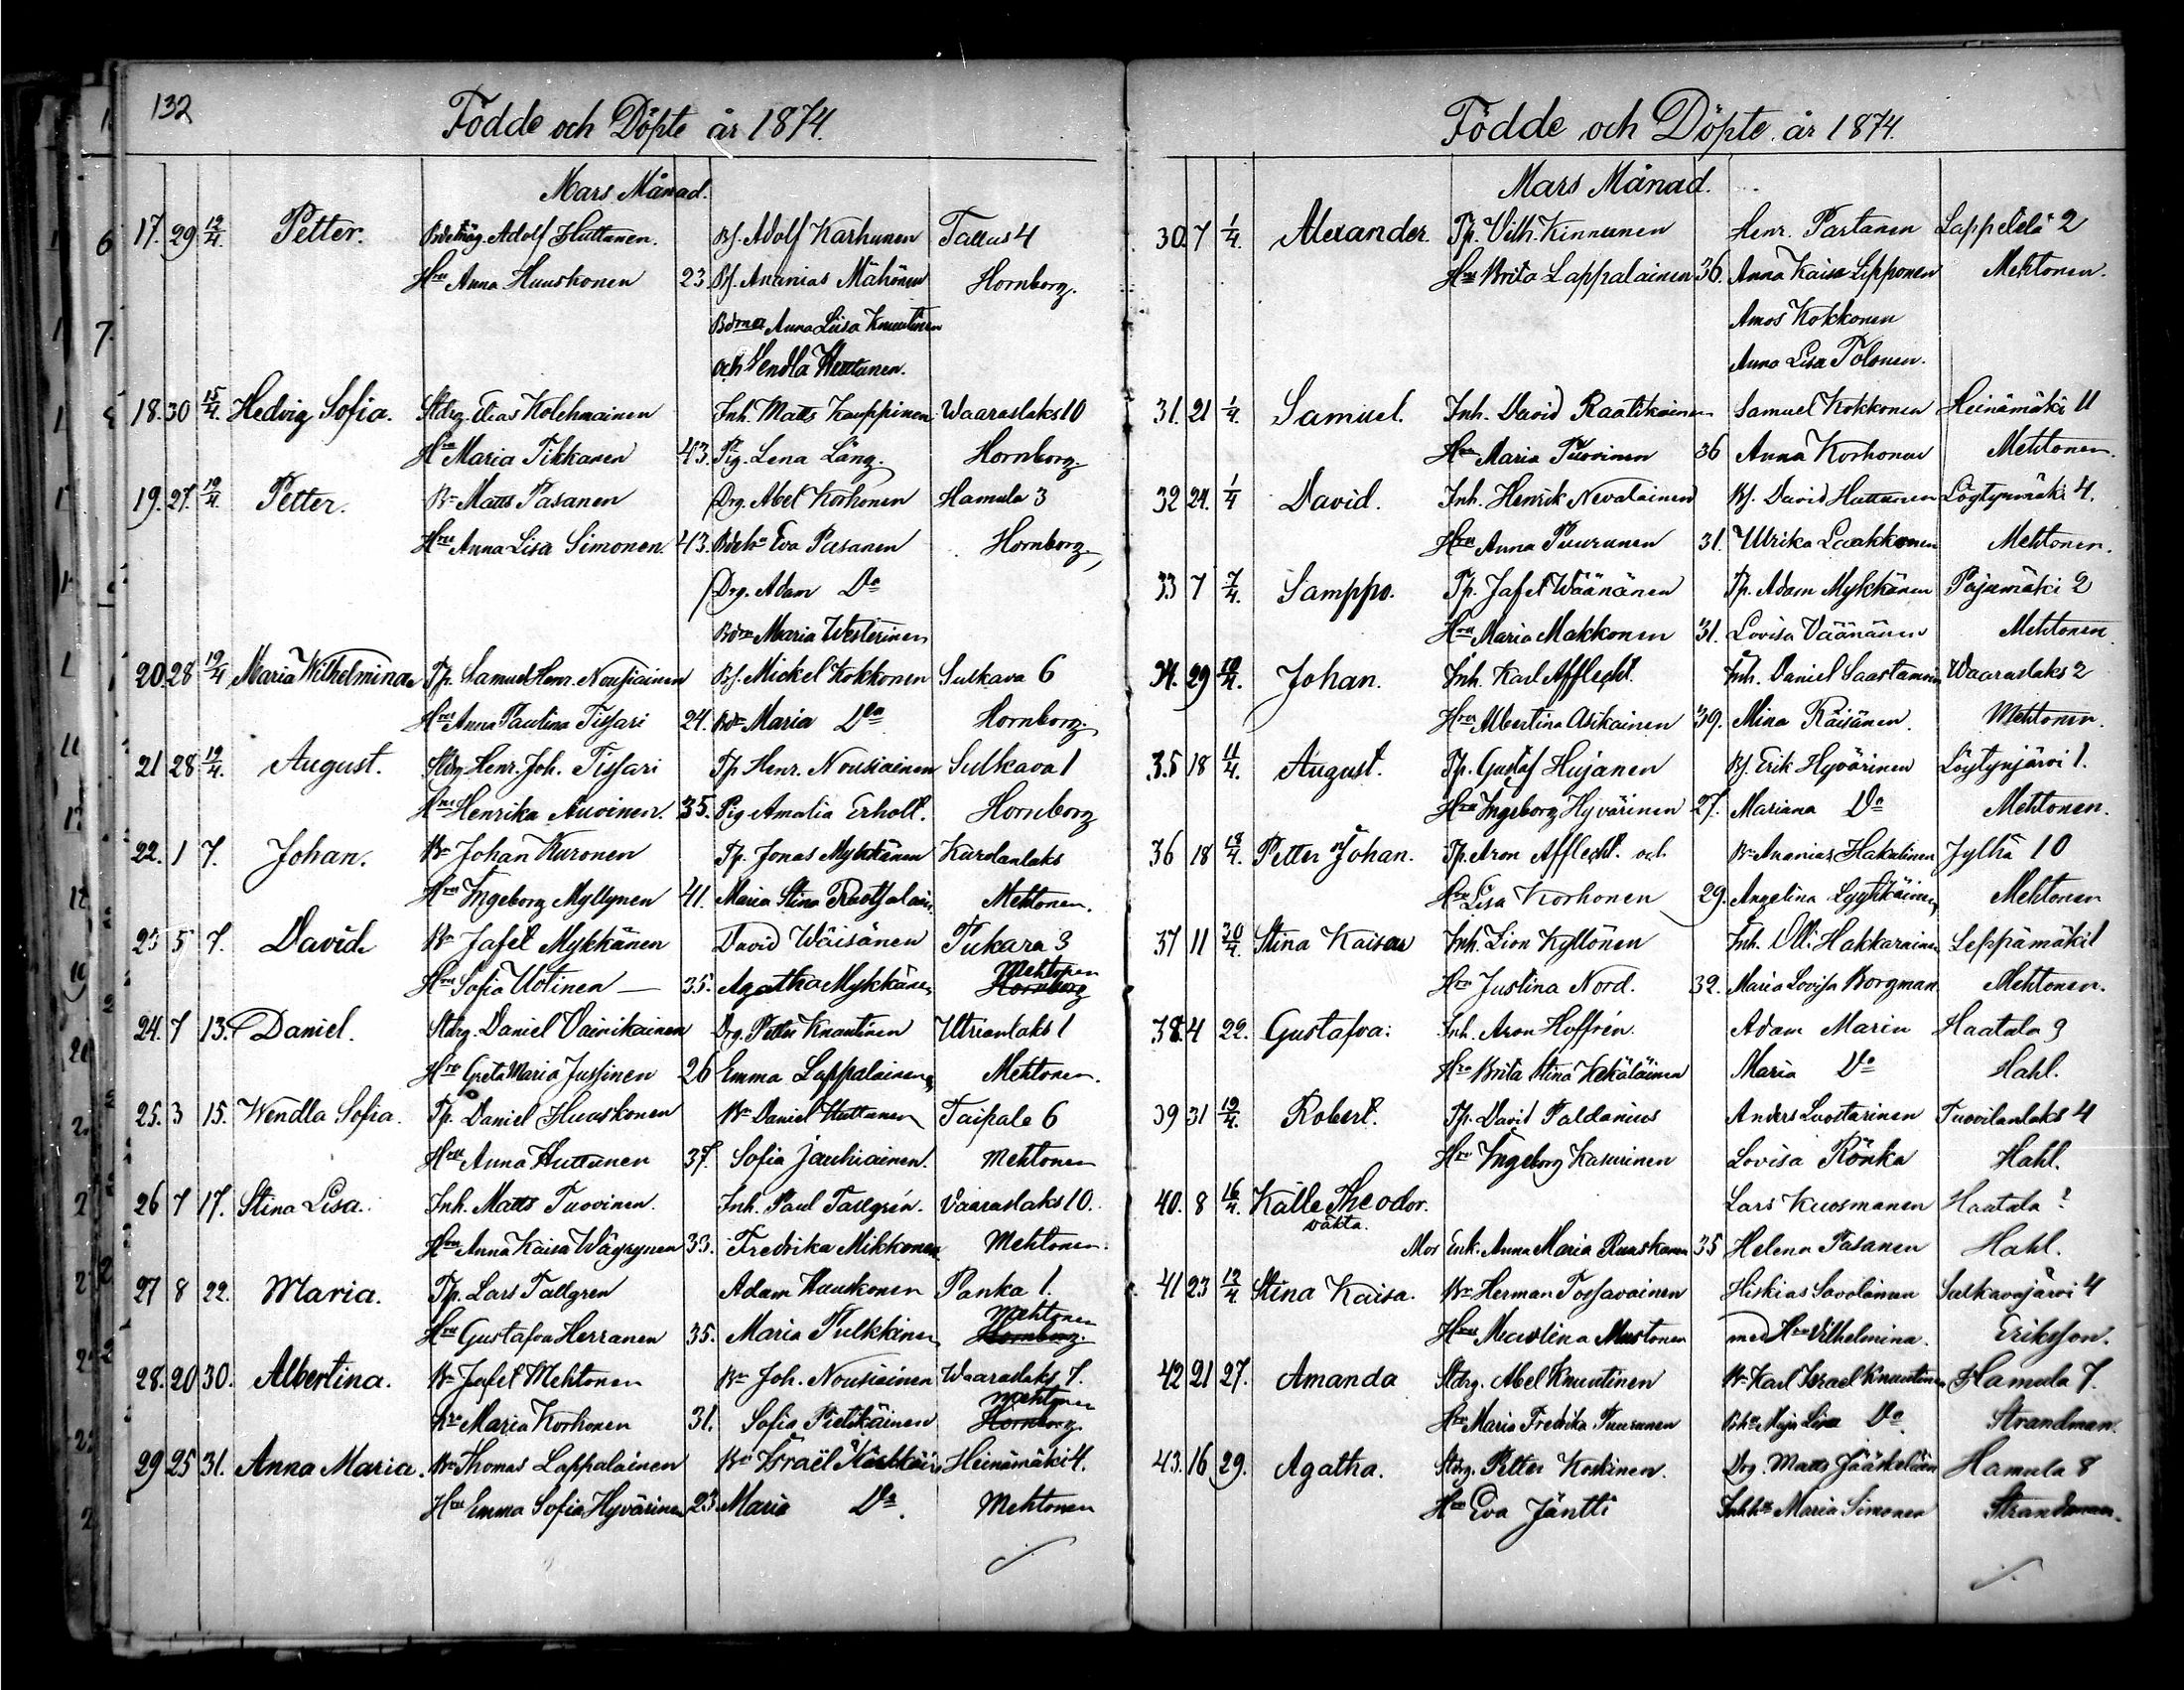 132
Födde och Döpte år 1874.
Mars Månad.
17. 29 12/4. Petter. Adolf Huttunen. Bf. Adolf Karhunen Tallus 4
Hru Anna Huuskonen 23. Bf. Ananias Mähönen Hornborg.
Anna Liisa Knuutinen
och Vendla Huttunen.
18. 30 15/4. Hedvig Sofia. Stdrg. Elias Kolehmainen Inh. Matts Kauppinen Waaraslaks 10
Hru Maria Tikkanen 43. Pig. Lena Läng. Hornborg.
19. 27. 19/4. Petter. Bn Matts Pasanen Drg. Abel Korhonen Hamula 3
Hru Anna Lisa Simonen. 43. Eva Pasanen Hornborg.
Drg. Adam Do
Bdru Maria Westerinen
20. 28 19/4 Maria Wilhelmina Tp. Samuel Henr. Nousiainen Bf. Mickel Kokkonen Sulkava 6
Hru Anna Paulina Tissari 24. Maria Do Hornborg.
21 28 19/4. August. Stdrg Henr. Joh. Tissari Tp Henr. Nousiainen Sulkava 1
Hru Henrika Auvinen. 35. Pig Amalia Erholt. Hornborg
22. 1 7. Johan. Bn Johan Kuronen Tp. Jonas Mykkänen Kurolanlaks
Hru Ingeborg Myllynen 41. Maria Stina Mehtonen.
23 5 7. David Bn Jafet Mykkänen David Wäisänen Pukara 3
Hru Sofia Uotinen — 35. Agatha Mykkänen Mehtonen Hornborg
24. 7 13. Daniel. Stdrg. Daniel Vainikainen Drg. Petter Knuutinen Utrianlaks 1
Hru Greta Maria Jussinen 26 Emma Lappalainen Mehtonen.
25. 3 15. Wendla Sofia. Tp. Daniel Huuskonen Bn Daniel Huttunen Taipale 6
Hru Anna Huttunen 37. Sofia Jauhiainen. Mehtonen
26 7 17. Stina Lisa. Inh. Matts Tuovinen. Inh. Paul Tallgrén. Vaaraslaks 10.
Hru Anna Kaisa Wäyrynen 33. Fredrika Mikkonen Mehtonen.
27 8 22. Maria. Tp. Lars Tallgren Adam Hauskonen Panka 1.
Hru Gustafva Herranen 35. Maria Pulkkinen Mehtonen Hornborg.
28. 20 30. Albertina. Bn Jafet Mehtonen Bn Joh. Nousiainen Waaraslaks 7.
Hru Maria Korhonen 31. Sofia Pietikäinen Mehtonen Hornborg
29 25 31. Anna Maria. Bn Thomas Lappalainen Bn Israël Heinämäki 4.
Hru Emma Sofia Hyvärinen 23 Maria Do. Mehtonen
Födde och Döpte år 1874.
Mars Månad.
30. 7 1/4. Alexander. Tp. Vilh. Kinnunen Henr. Partanen Lappetelä 2
Hru Brita Lappalainen 36. Anna Kaisa Lipponen Mehtonen.
Amos Kokkonen
Anna Lisa Tolonen.
31. 21 1/4. Samuel. Inh. David Raatikainen Samuel Kokkonen Heinämäki 11
Hru Maria Tuovinen 36 Anna Korhonen Mehtonen.
32 24. 1/4 David. Inh. Henrik Nevalainen Bf. David Huttunen Löytynmäki 4.
Hru Anna Puurunen 31. Ulrika Laakkonen Mehtonen.
33 7 7/4. Samppo. Tp. Jafet Wäänänen Tp. Adam Mykkänen Pajumäki 2
Hru Maria Makkonen 31. Lovisa Väänänen Mehtonen
34. 29 10/4. Johan. Inh. Karl Afflecht. Inh. Daniel Saastamoin Waaraslaks 2
Hru Albertina Asikainen 39. Mina Räisänen. Mehtonen.
35 18 11/4. August. Tp. Gustaf Hujanen Bf. Erik Hyvärinen Löytynjärvi 1.
Hru Ingeborg Hyvärinen 27. Mariana Do Mehtonen.
36 18 18/4. Petter Johan. Tp. Aron Afflecht. och Bn Ananias Hakulinen Jylhä 10
Hru Lisa Korhonen 29. Angelina Lyytikäinen Mehtonen
37 11 20/4. Stina Kaisa Inh. Lion Kyllönen Inh. Olli Hakkarainen Leppämäki 1
Hru Justina Nord. 32. Maria Lovisa Borgman. Mehtonen.
38. 4 22. Gustafva. Inh. Aron Hoffrén. Adam Marin Haatala 9
Hru Brita Stina Kekäläinen Maria Do Hahl.
39 31 19/4. Robert. Tp. David Paldanius Anders Luostarinen Tuovilanlaks 4
Hru Ingeborg Kasurinen Lovisa Rönkä Hahl.
40. 8 16/4. Kalle Theodor. Lars Kuosmanen Haatala ?
oäkta. Mor Enk. Anna Maria Ruuskanen 35 Helena Pasanen Hahl.
41 23 12/4 Stina Kaisa. Bn Herman Tossavainen Hiskias Savolainen Sulkavajärvi 4
Hru Mustonen med Hru Vilhelmina. Eriksson.
42 21 27. Amanda Stdrg. Abel Knuutinen Bn Karl Israel Knuutinen Hamula 7.
Hru Maria Fredrika Puurunen Maja Lisa Do. Strandman.
43. 16 29. Agatha. Stdrg. Petter Koskinen. Drg. Matts Jääskeläin Hamula 8
Hru Eva Jäntti Maria Simonen Strandman.